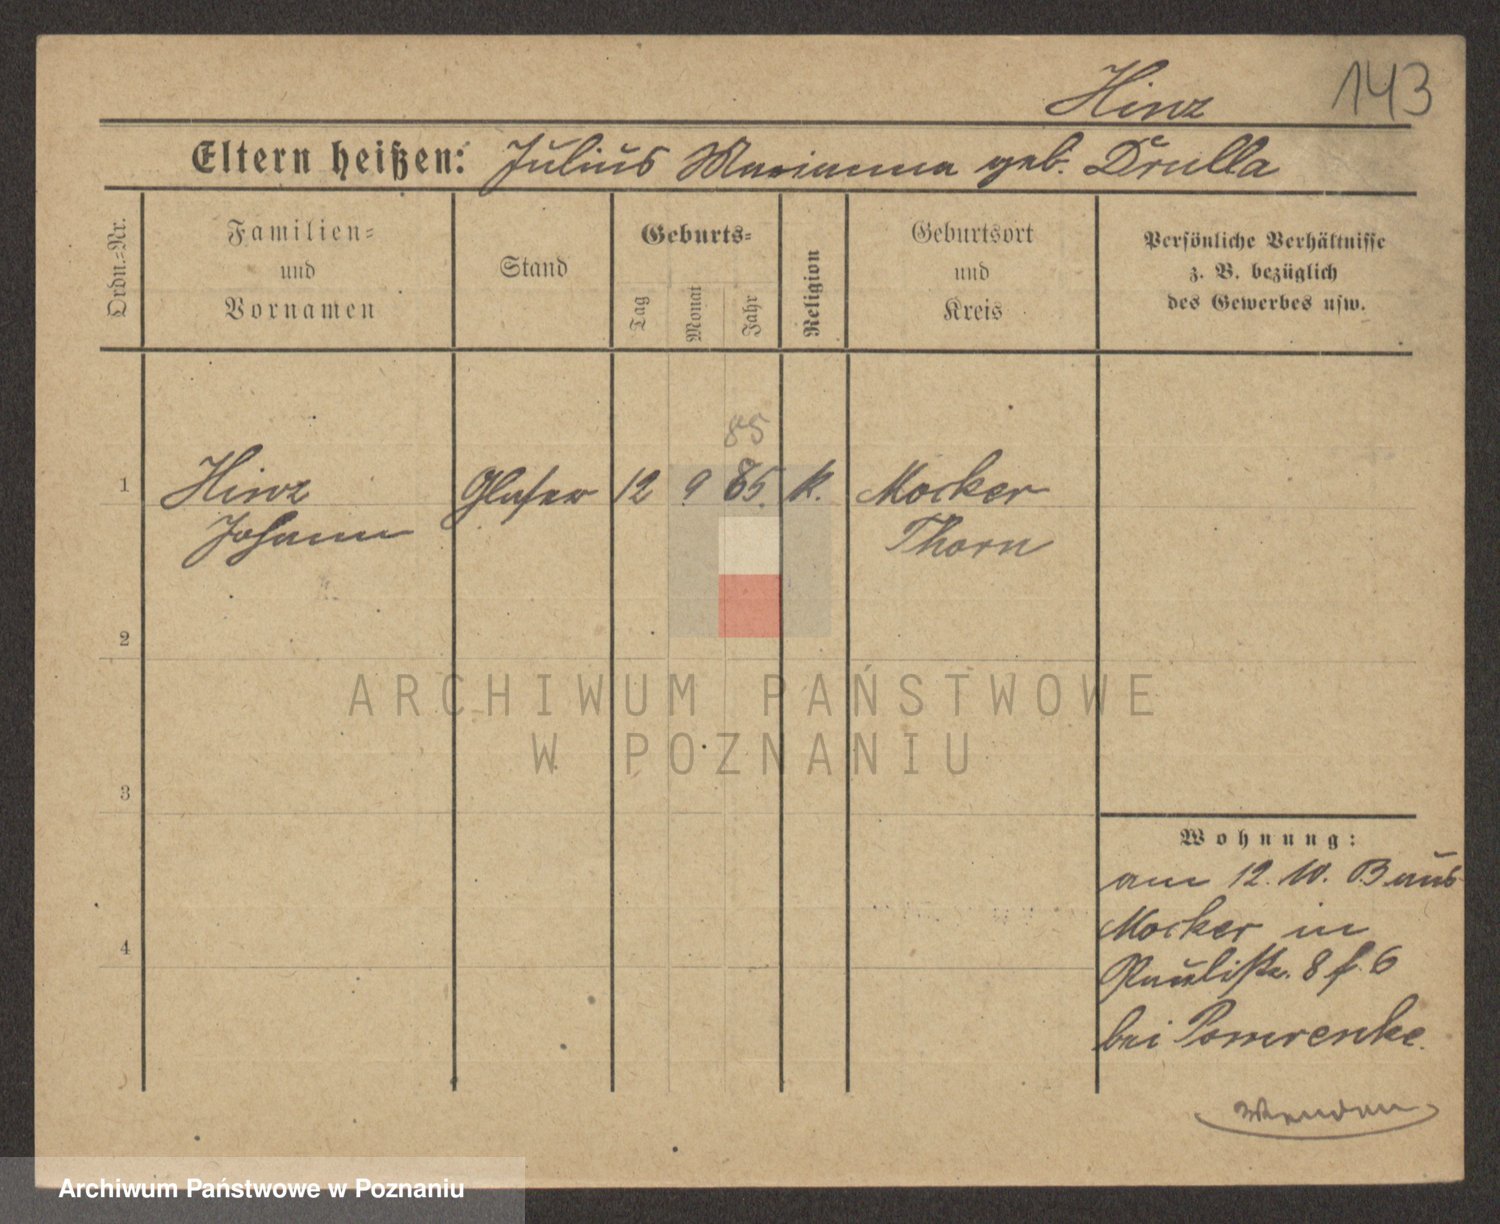 Hinz
143
Eltern heißen: Julius Marianna geb. Drulla
Ordn.-Nr.
Familien-
und
Vornamen
Stand
Geburts-
Tag
Monat
Jahr
Religion
Geburtsort
und
Kreis
Persönliche Verhältnisse
z. B. bezüglich
des Gewerbes usw.
85
1 Hinz Glaser 12 9 85. k. Mocker
Johann Thorn
2
ARCHIWUM PAŃSTWOWE
W POZNANIU
3
Wohnung:
am 12. 10. B aus
Mocker in
Paulistr. 8 f. 6
4
bei Pomrenke.
Wenden
Archiwum Państwowe w Poznaniu